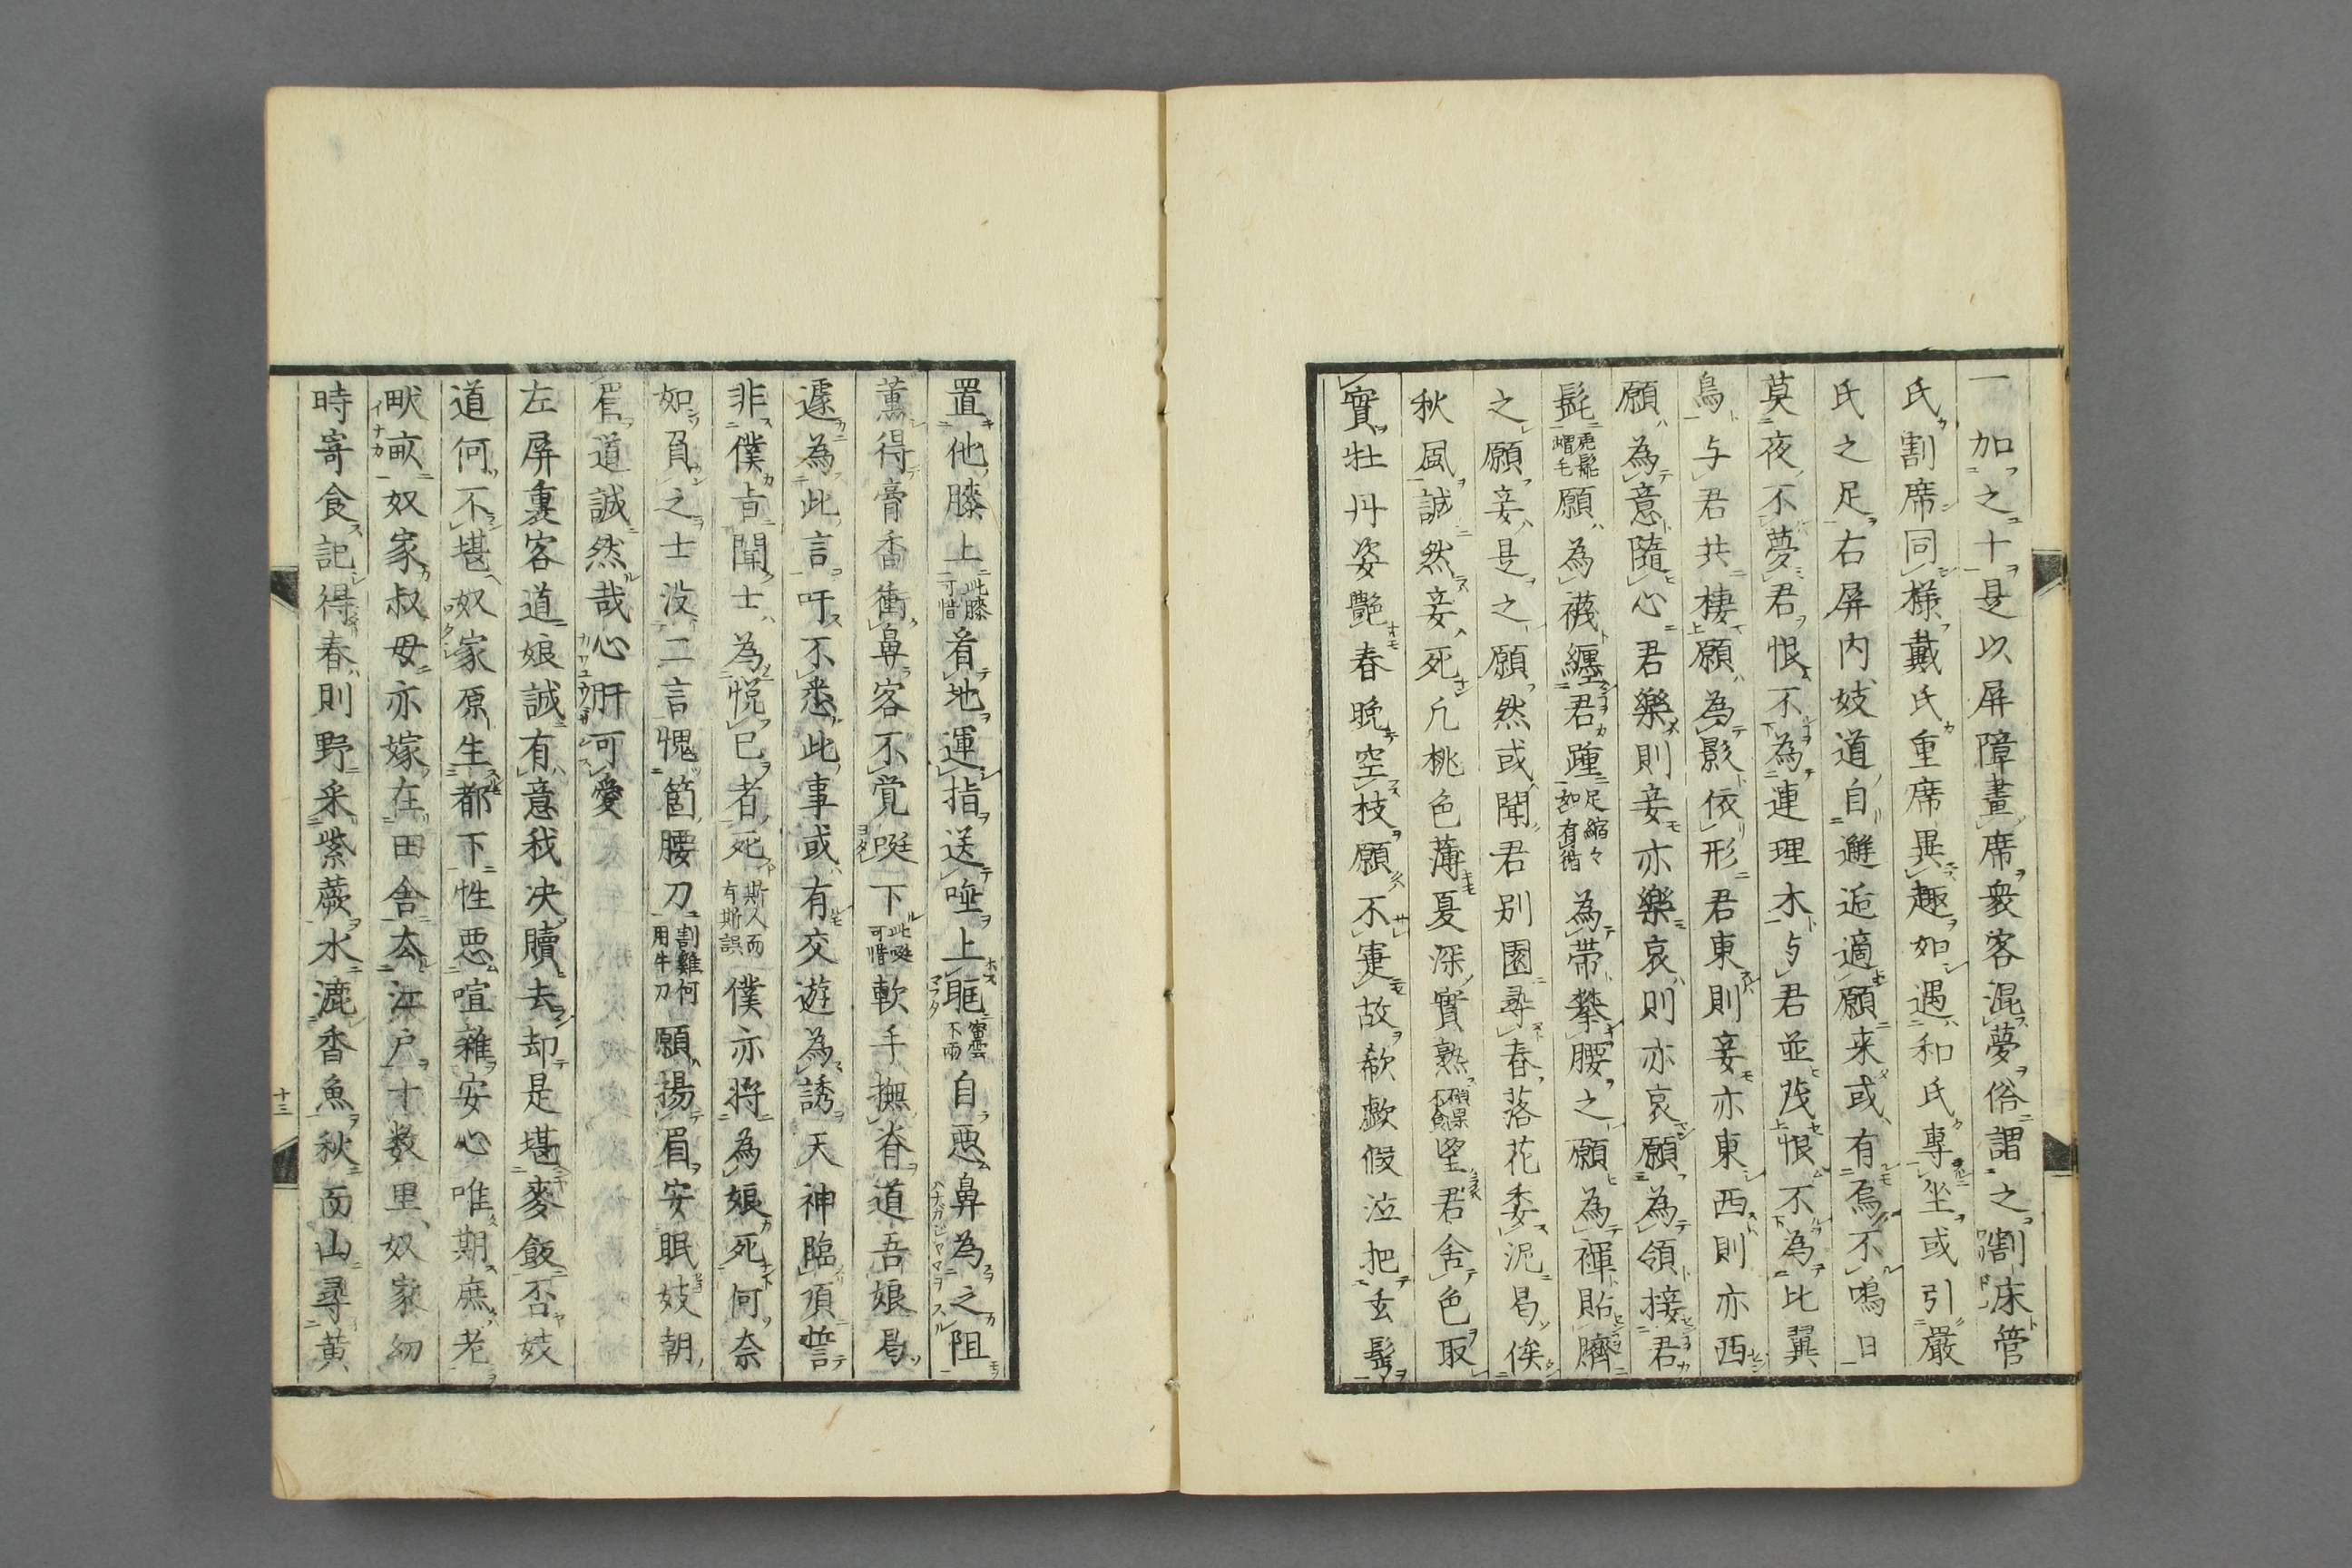 一加之十是以屏障畫席衆客混夢俗謂之割床管
氏割席同様戴氏重席異趣如遇和氏專坐或引嚴
氏之足右屏内妓道自邂逅適願来或有烏不鳴日
莫夜不夢君恨不為連理木与君並茂恨不為比翼
鳥与君共棲願為影依形君東則妾亦東西則亦西
願為意隨心君樂則妾亦樂哀則亦哀願為領接君
髭願為襪纏君踵足縮々如有循為帶攀腰之願為褌貼臍
之願妾是之願然或聞君別園尋春落花委泥曷俟
秋風誠然妾死凢桃色薄夏深實熟碩果不食望君舎色取
實牡丹姿艶春晩空枝願不寔故欷歔假泣把玄髪
置他膝上此膝可惜看地運指送唾上眶密雲不雨自悪鼻為之阻
薫得膏香衝鼻客不覚唌下此唌可惜軟手撫脊道吾娘曷
遽為此言吁不悉此事或有交遊為誘天神臨頂誓
非僕㫖聞士為悦已者死斯人而有斯誤僕亦将為娘死何奈
如負之士没二言愧箇腰刀割雞何用牛刀願揚眉安眠妓朝
眉道誠然哉心肝可愛
左屏裏客道娘誠有意我决贖去却是堪麥飯否妓
道何不堪奴家原生都下性悪喧雜安心唯期庶老
畎畝奴家叔母亦嫁在田舎去江戸十数里奴家幼
時寄食記得春則野采紫蕨水漉香魚秋而山尋黄
十三